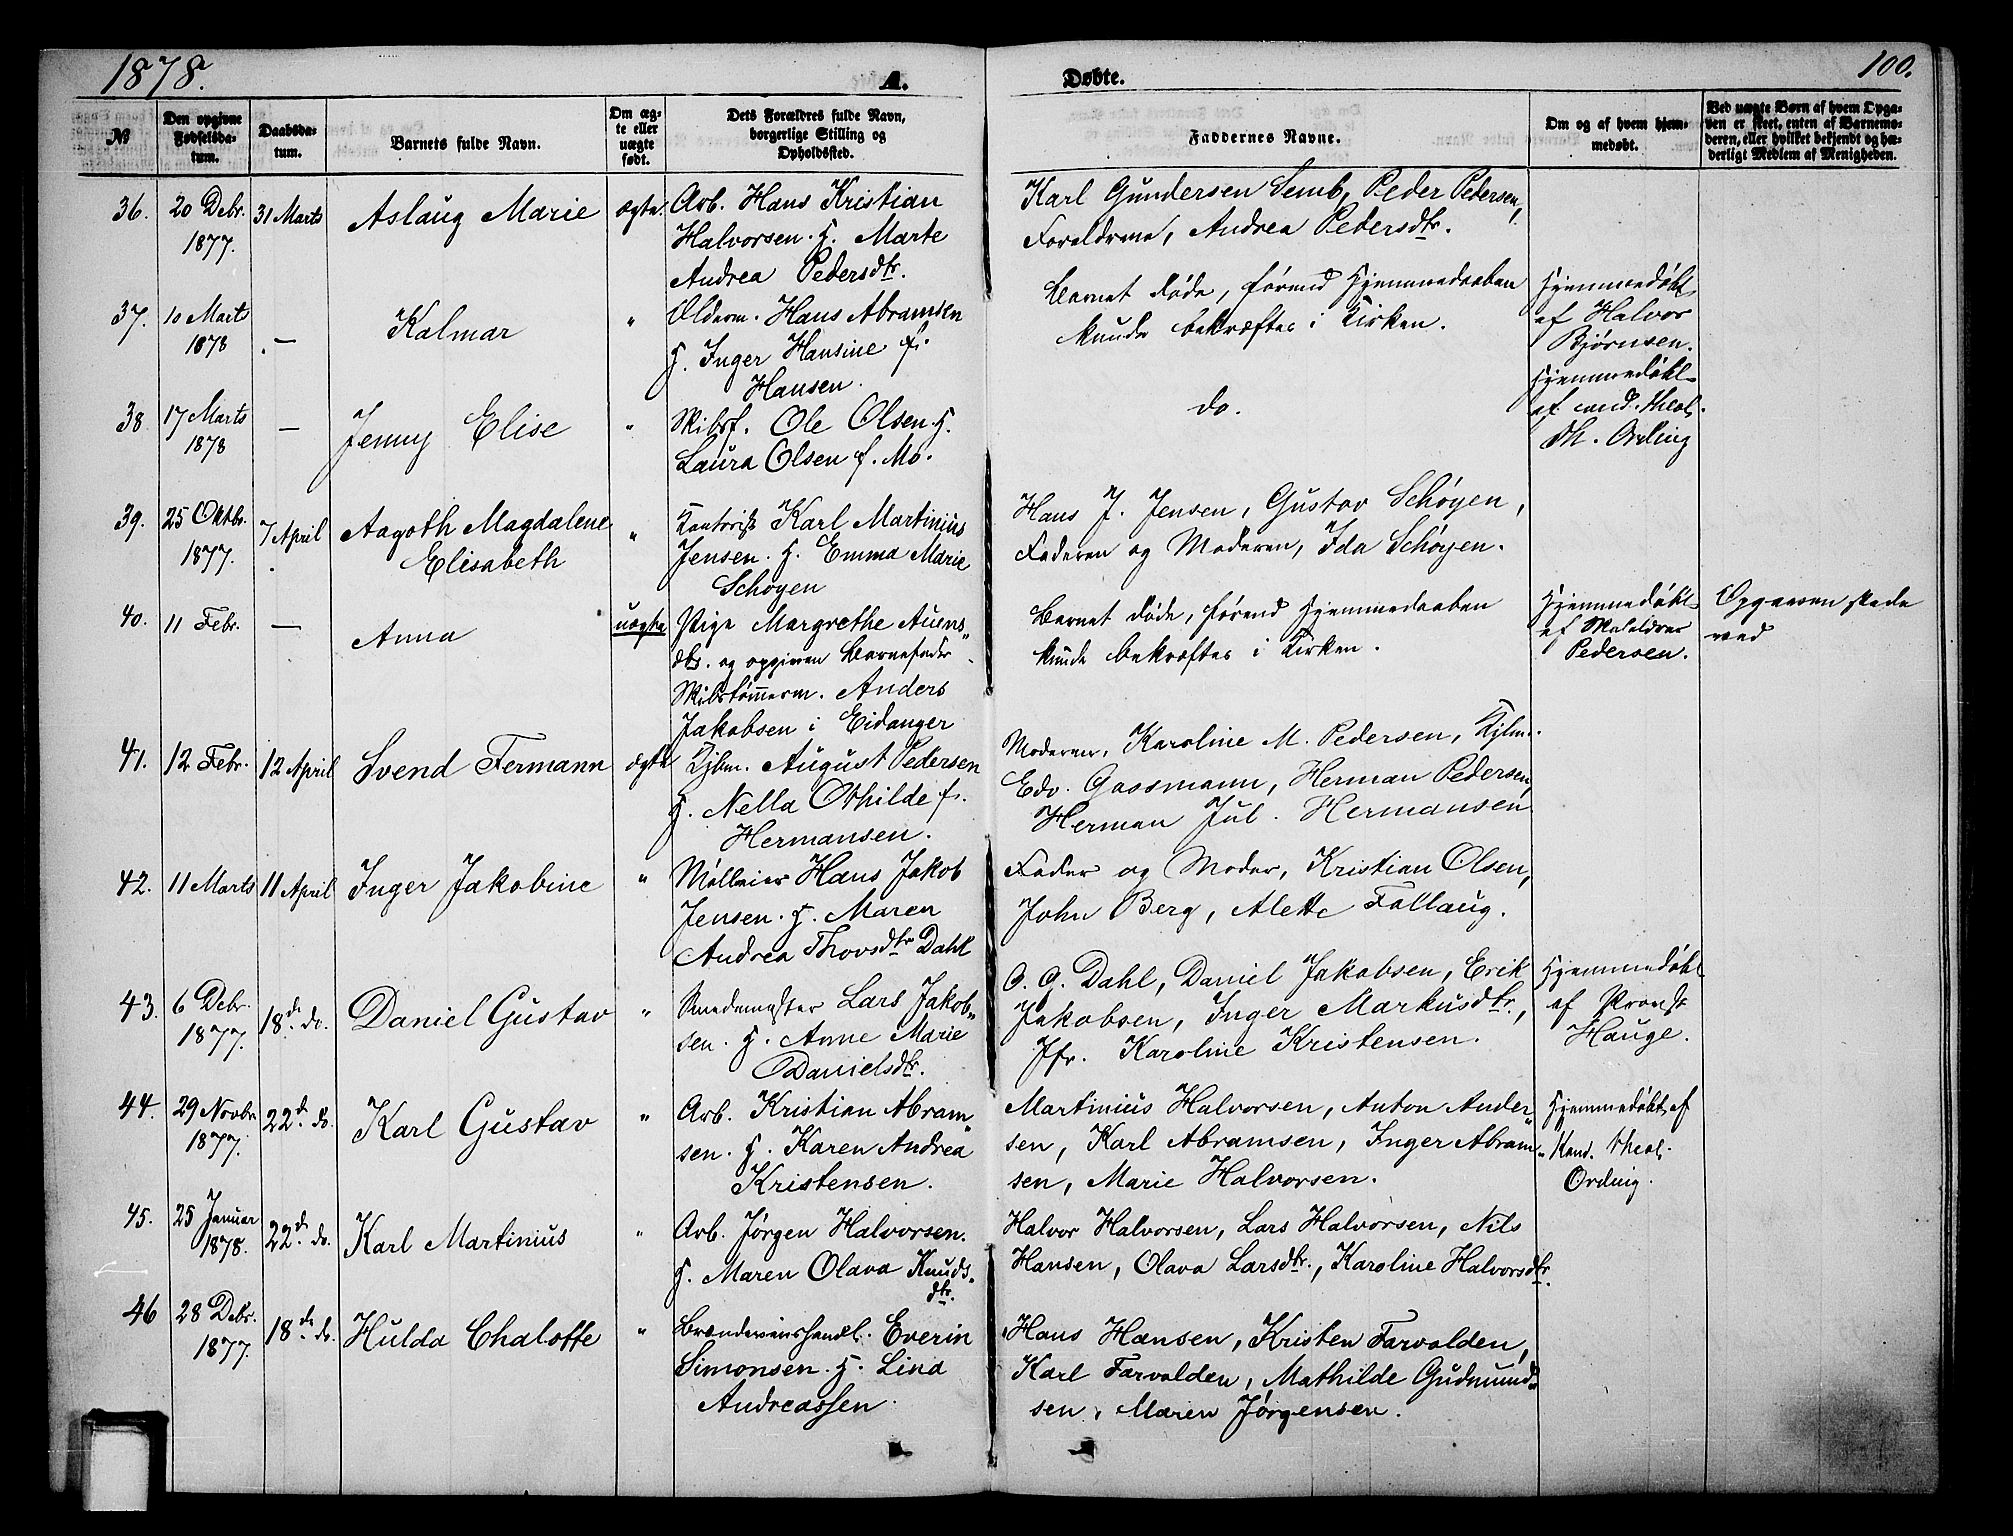 1878.
A.
Døbte.
100.
№
Den opgivne Fødselsdatum.
Daabsdatum.
Barnets fulde Navn.
Om ægte eller uægte født.
Dets Forældres fulde Navn, borgerlige Stilling og Opholdssted.
Faddernes Navne.
Om og af hvem hjemmedøbt.
Ved uægte Børn af hvem Opgaven er skeet, enten af Barnemoderen, eller hvilket bekjendt og hæderligt Medlem af Menigheden.
36. 20 Debr. 1877. 31 Marts Aslaug Marie ægte.
Arb. Hans Kristian
Halvorsen. H. Marte
Andrea Pedersdtr.
Karl Gundersen Semb, Peder Pedersen,
Foreldrene, Andrea Pedersdtr.
37. 10 Marts 1878 — Kalmar "
Olderm. Hans Abramsen
H. Inger Hansine f.
Hansen.
Barnet døde, førend Hjemmedaaben
kunde bekræftes i Kirken.
Hjemmedøbt
af Halvor
Bjørnsen.
38. 17 Marts 1878 — Jenny Elise "
Skibsf. Ole Olsen. H.
Laura Olsen f. Mo.
do.
Hjemmedøbt
af cand. theol.
Th. Ording
39. 25 Oktbr. 1877. 7 April Aagoth Magdalene
Elisabeth "
Kontorist Karl Martinius
Jensen. H. Emma Marie
Schøyen
Hans J. Jensen, Gustav Schøyen,
Faderen og Moderen, Ida Schøyen.
40. 11 Febr. — Anna uægte
Pige Margrethe Auens„
dtr. og opgiven Barnefader
Skibstømerm. Anders
Jakobsen i Eidanger
Barnet døde, førend Hjemmedaaben
kunde bekræftes i Kirken.
Hjemmedøbt
af
Pedersen.
Opgaven skede
ved
41. 12 Febr. 12 April Svend Fermann ægte
Kjbm. August Pedersen
H. Nella Othilde f.
Hermansen.
Moderen, Karoline M. Pedersen, Kjbm.
Edv. Gassmann, Herman Pedersen,
Herman Jul. Hermansen
42. 11 Marts 11 April Inger Jakobine "
Møller Hans Jakob
Jensen. H. Maren
Andrea Thovsdtr Dahl
Fader og Moder, Kristian Olsen,
John Berg, Alette Follaug.
43. 6 Debr. 1877. 18de do. Daniel Gustav "
Smedmester Lars Jakob„
sen. H. Anne Marie
Danielsdtr.
O. G. Dahl, Daniel Jakobsen, Erik
Jakobsen, Inger Markusdtr.,
Jfr. Karoline Kristensen.
Hjemmedøbt
af Provst
Hauge.
44. 29 Novbr 1877. 22de do. Karl Gustav "
Arb. Kristian Abram„
sen. H. Karen Andrea
Kristensen.
Martinius Halvorsen, Anton Ander„
sen, Karl Abramsen, Inger Abram„
sen, Marie Halvorsen.
Hjemmedøbt af
Kand. theol.
Ording.
45. 25 Januar 1878. 22de do. Karl Martinius "
Arb. Jørgen Halvorsen.
H. Maren Olava Knuds„
dtr.
Halvor Halvorsen, Lars Halvorsen, Nils
Hansen, Olava Larsdtr., Karoline Halvorsdtr.
46 28 Debr. 1877. 18de do. Hulda Chalotte "
Brændevinshandl. Everin
Simonsen. H. Lina
Andreassen.
Hans Hansen, Kristen Farvolden,
Karl Farvolden, Mathilde Gudmund„
sen, Maren Jørgensen.